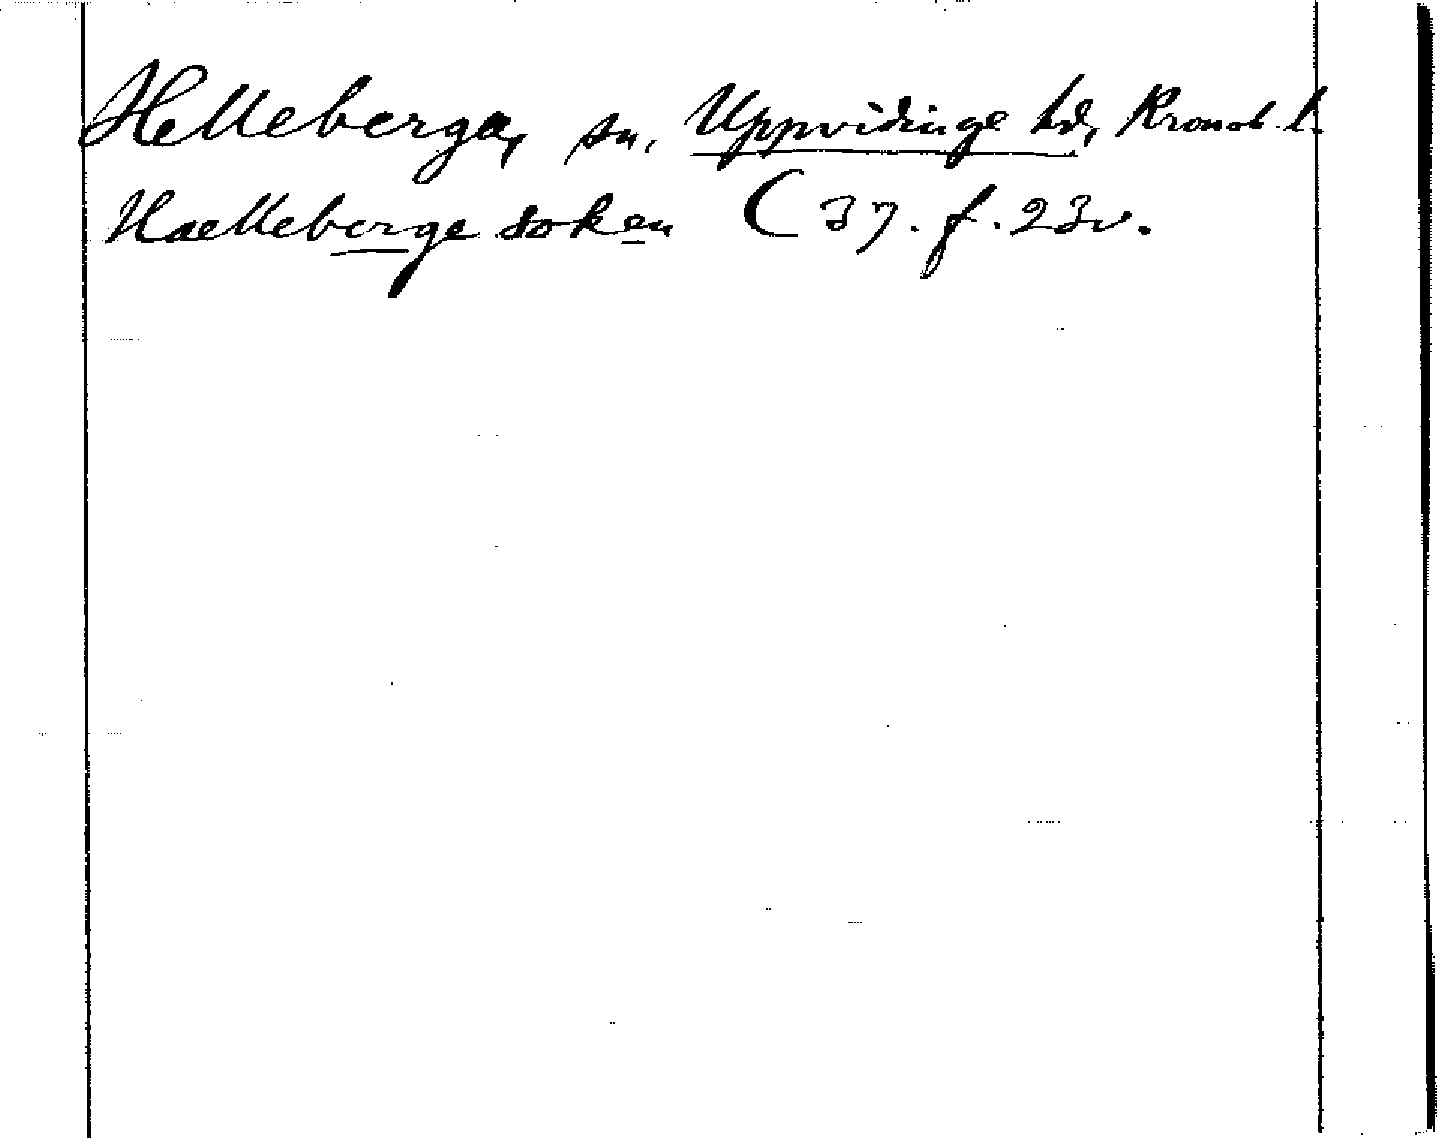 Helleberga, sn. Uppvidinge hd, Kronob. l.
Haelleberge soken ( 37. f. 23v.